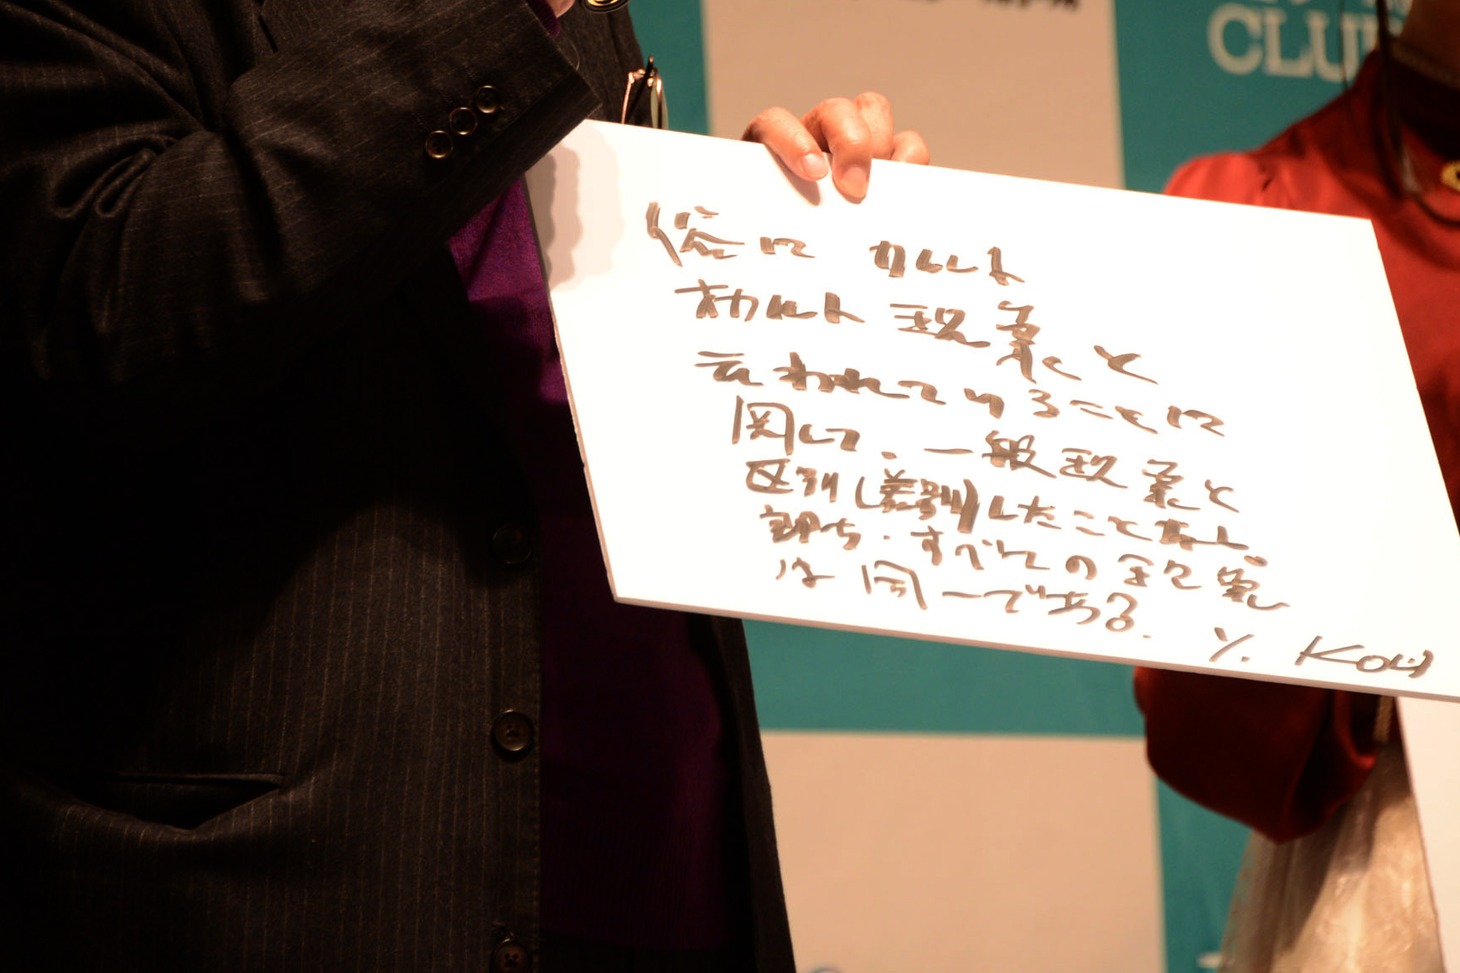 CLUB
俗に カルト
オカルト 現象と
云われていることに
関して、一般現象と
区別(差別)したことなし。
即ち、すべての現象
は同一である。 Y. Kou